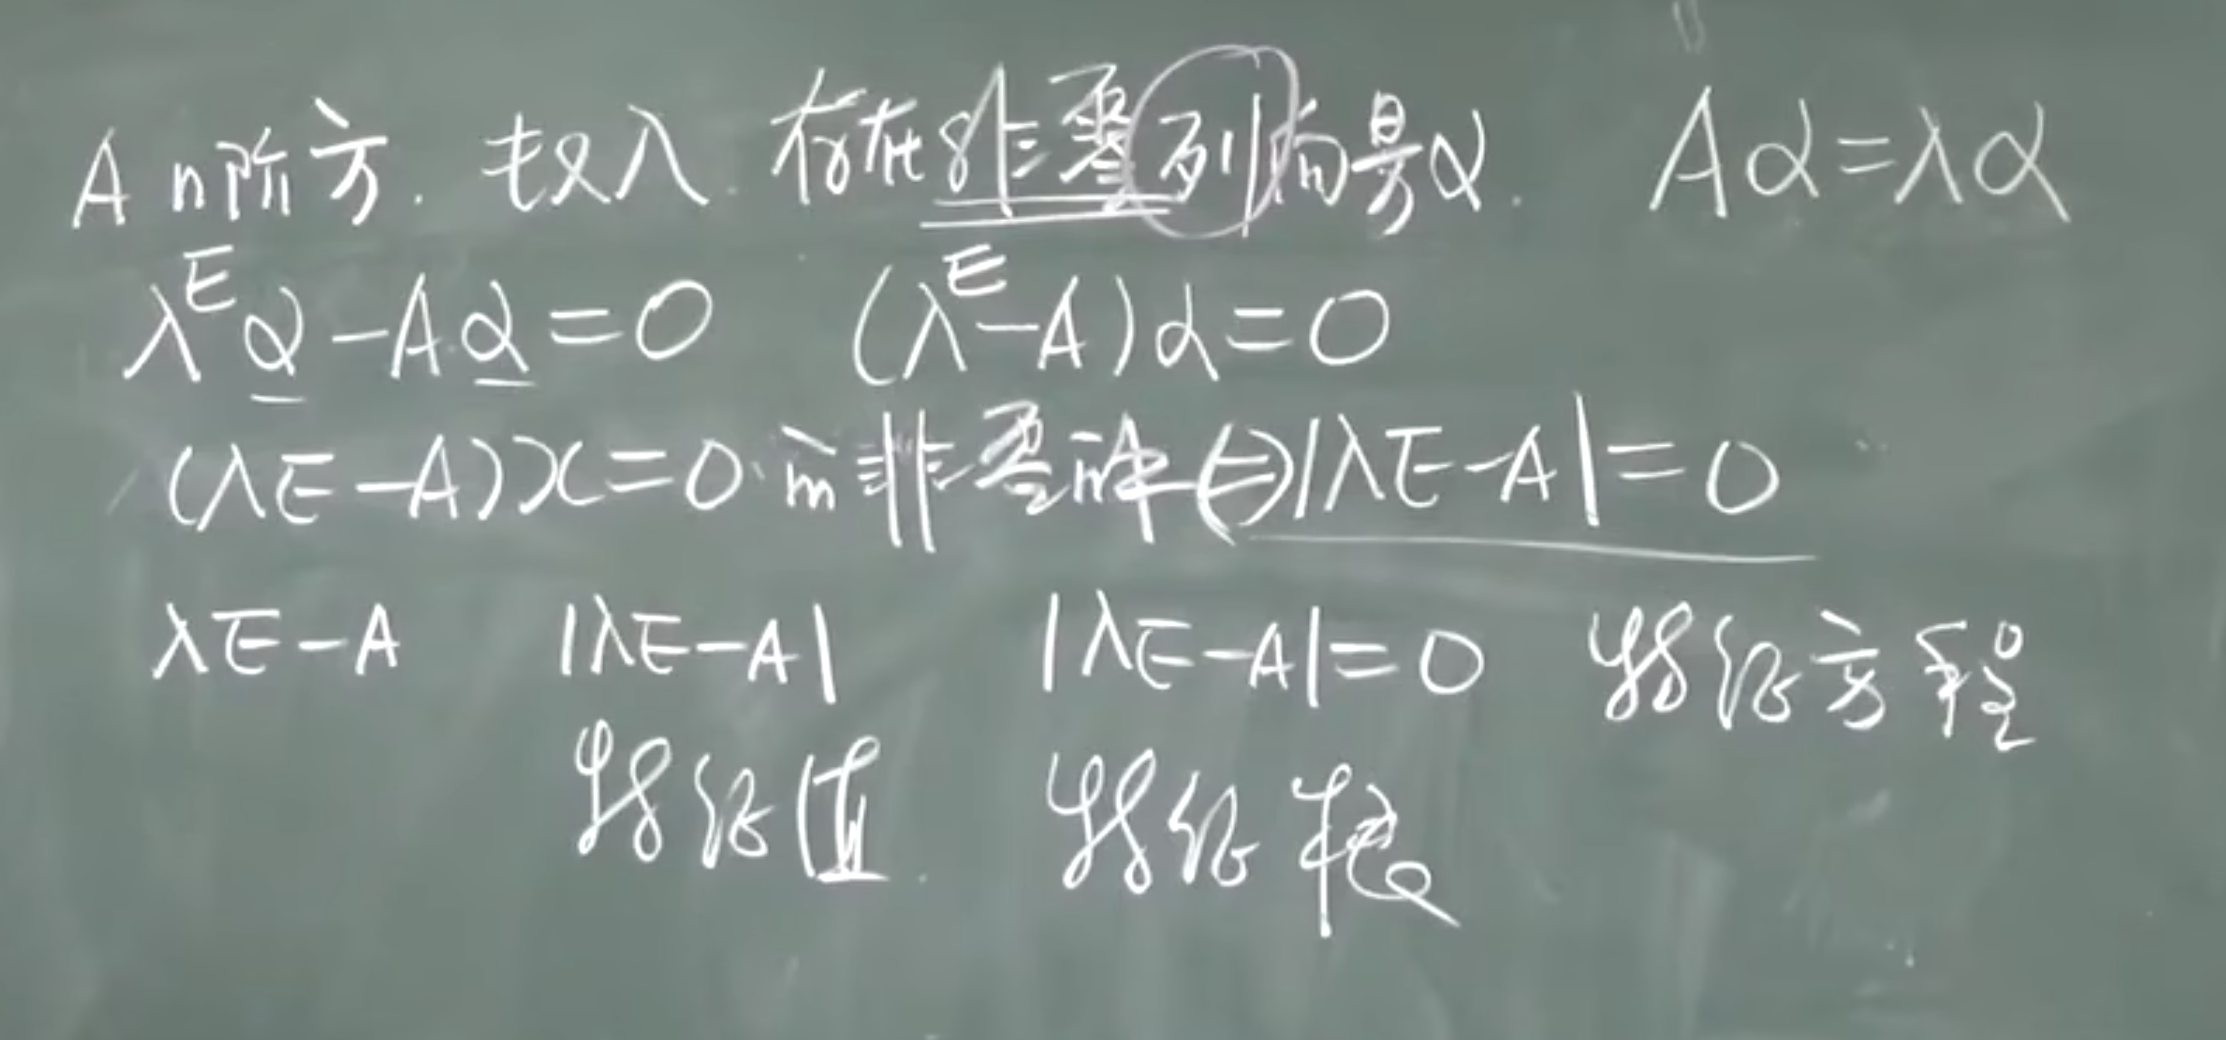 A n阶方. 数λ. 存在非零列向量α. Aα=λα
λEα-Aα=0 (λE-A)α=0
(λE-A)x=0 有非零解⇔|λE-A|=0
λE-A |λE-A| |λE-A|=0 特征方程
特征值. 特征根